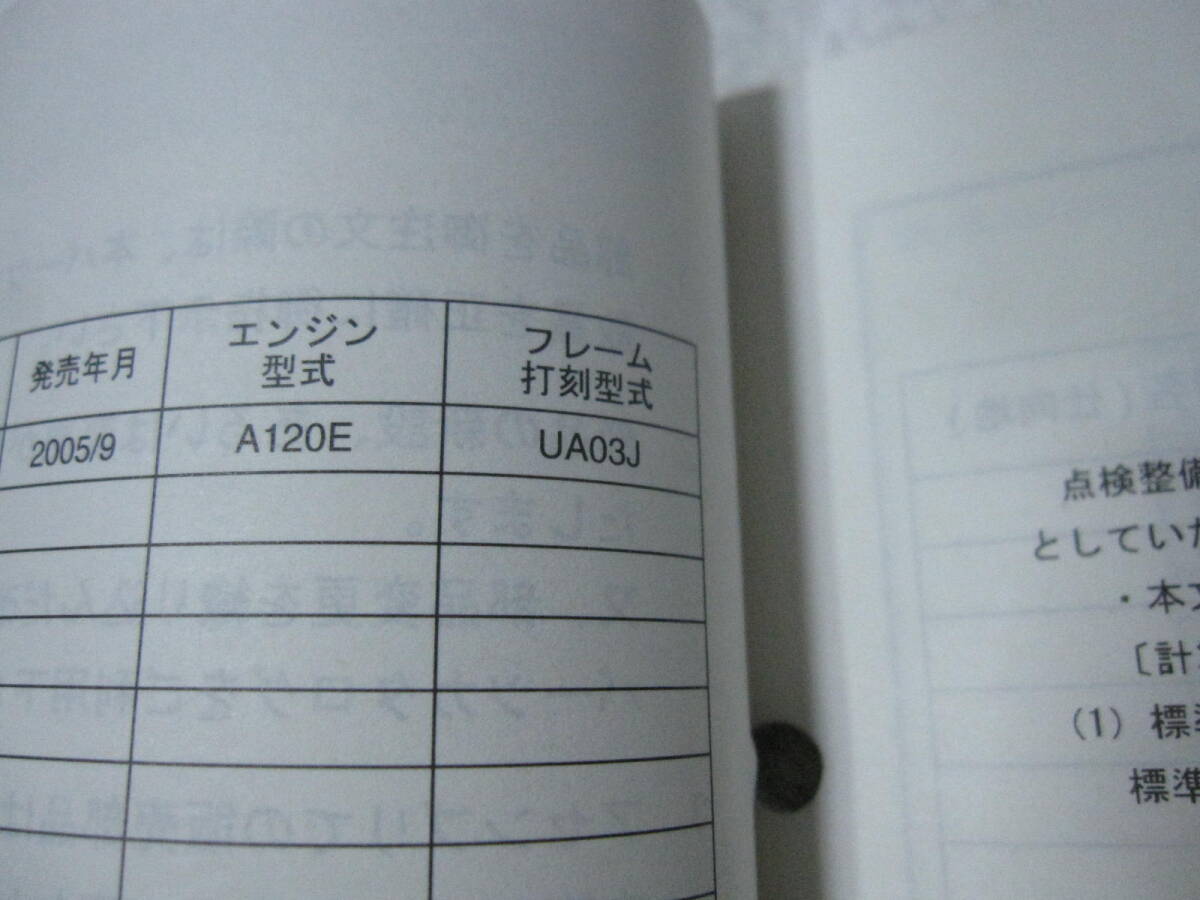 発売年月
エンジン
型式
フレーム
打刻型式
2005/9
A120E
UA03J
点検整備
としていた
・本文
〔計
(1) 標準
標準